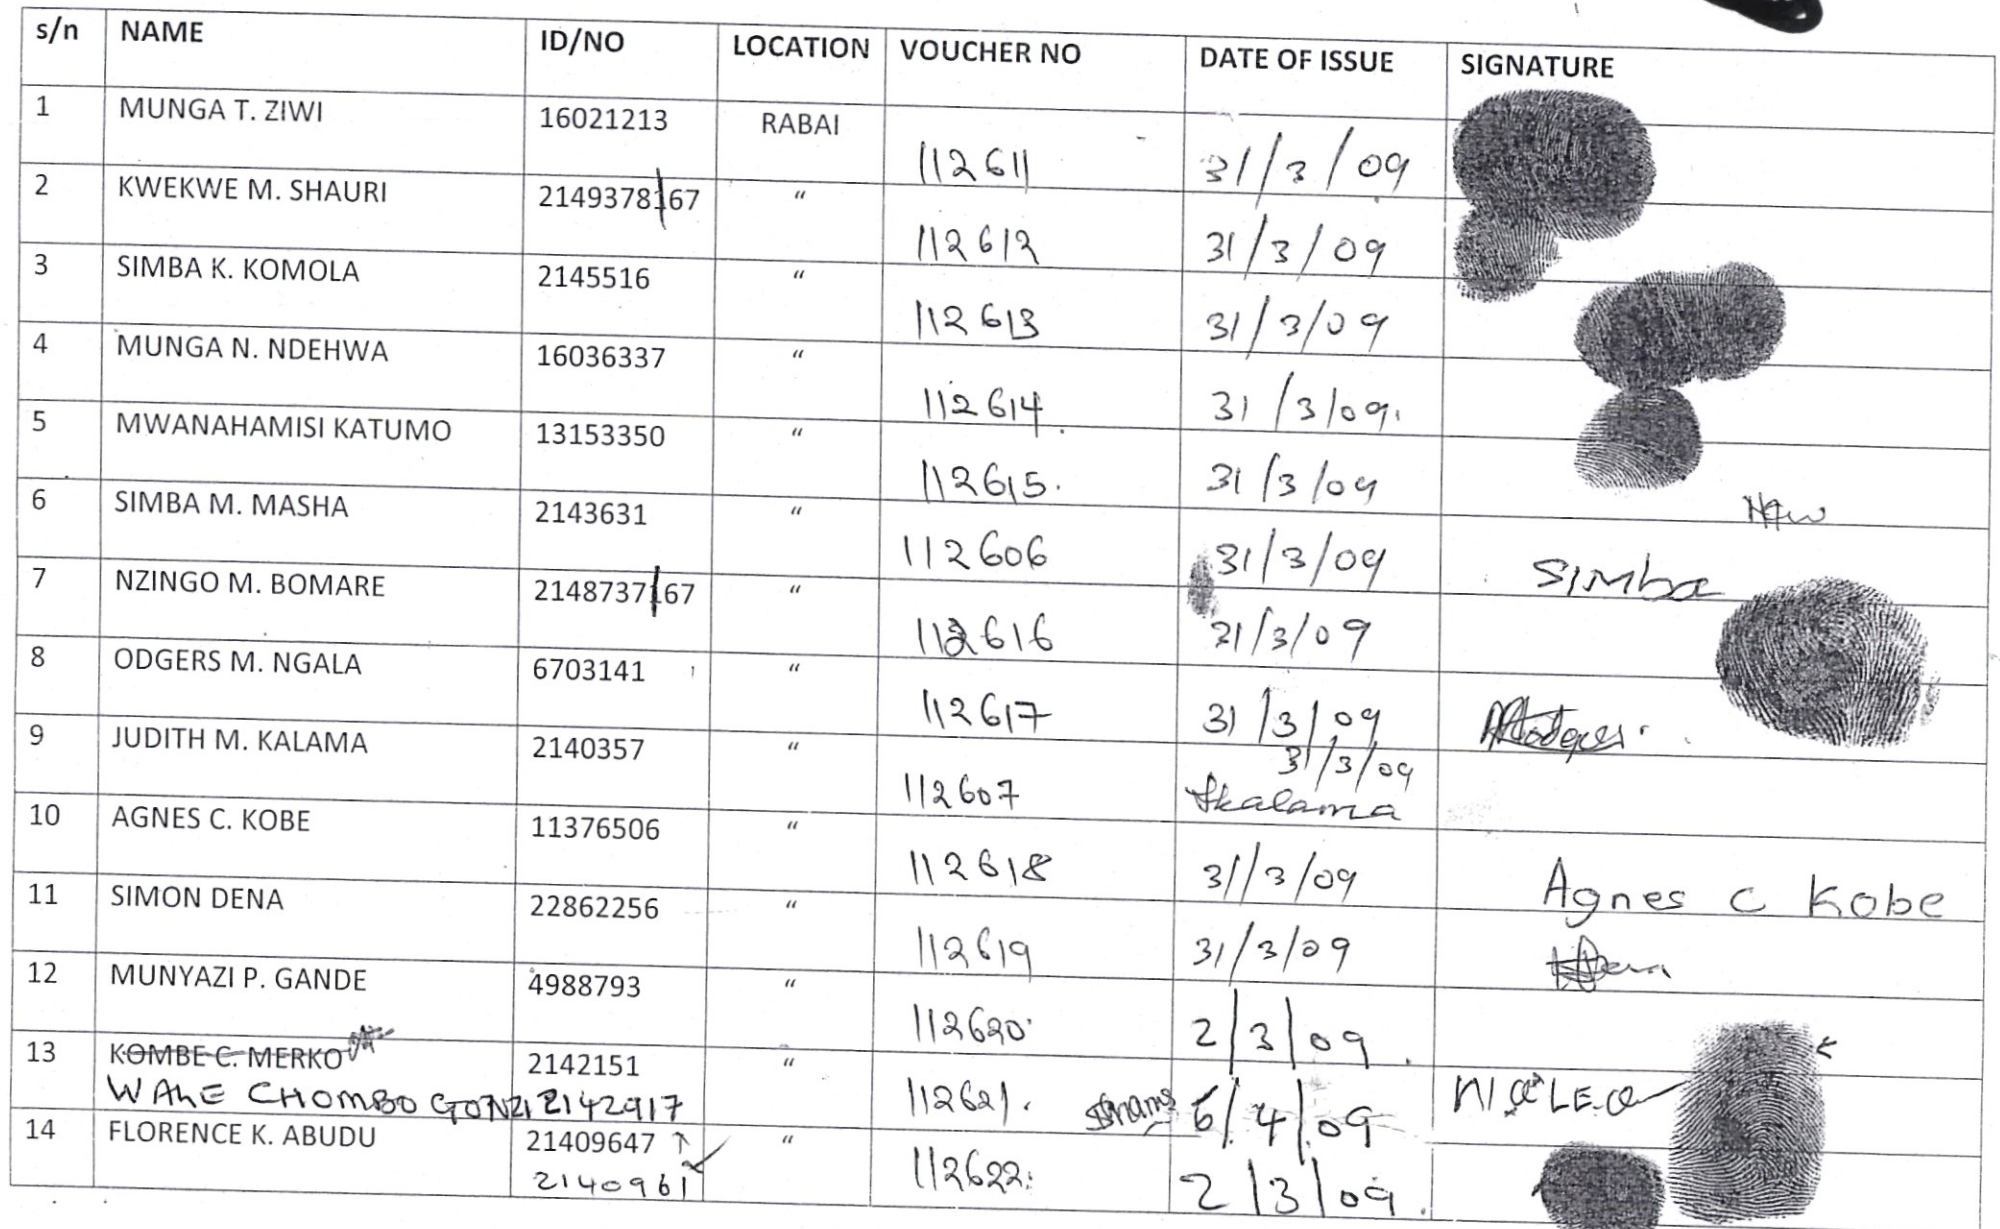 s/n NAME ID/NO LOCATION VOUCHER NO DATE OF ISSUE SIGNATURE
1 MUNGA T. ZIWI 16021213 RABAI 112611 31/3/09
2 KWEKWE M. SHAURI 2149378167 " 112612 31/3/09
3 SIMBA K. KOMOLA 2145516 " 112613 31/3/09
4 MUNGA N. NDEHWA 16036337 " 112614 31/3/09.
5 MWANAHAMISI KATUMO 13153350 " 112615. 31/3/09
6 SIMBA M. MASHA 2143631 " 112606 31/3/09 SIMba
7 NZINGO M. BOMARE 2148737167 " 112616 31/3/09
8 ODGERS M. NGALA 6703141 " 112617 31/3/09
9 JUDITH M. KALAMA 2140357 " 112607 31/3/09
Jkalama
10 AGNES C. KOBE 11376506 " 112618 31/3/09 Agnes C Kobe
11 SIMON DENA 22862256 " 112619 31/3/09
12 MUNYAZI P. GANDE 4988793 " 112620. 2/3/09.
13 KOMBE C. MERKO 2142151 " 112621. 6/4/09
WALE CHOMBO GONZI 2142917
14 FLORENCE K. ABUDU 21409647 " 112622. 2/3/09.
2140961